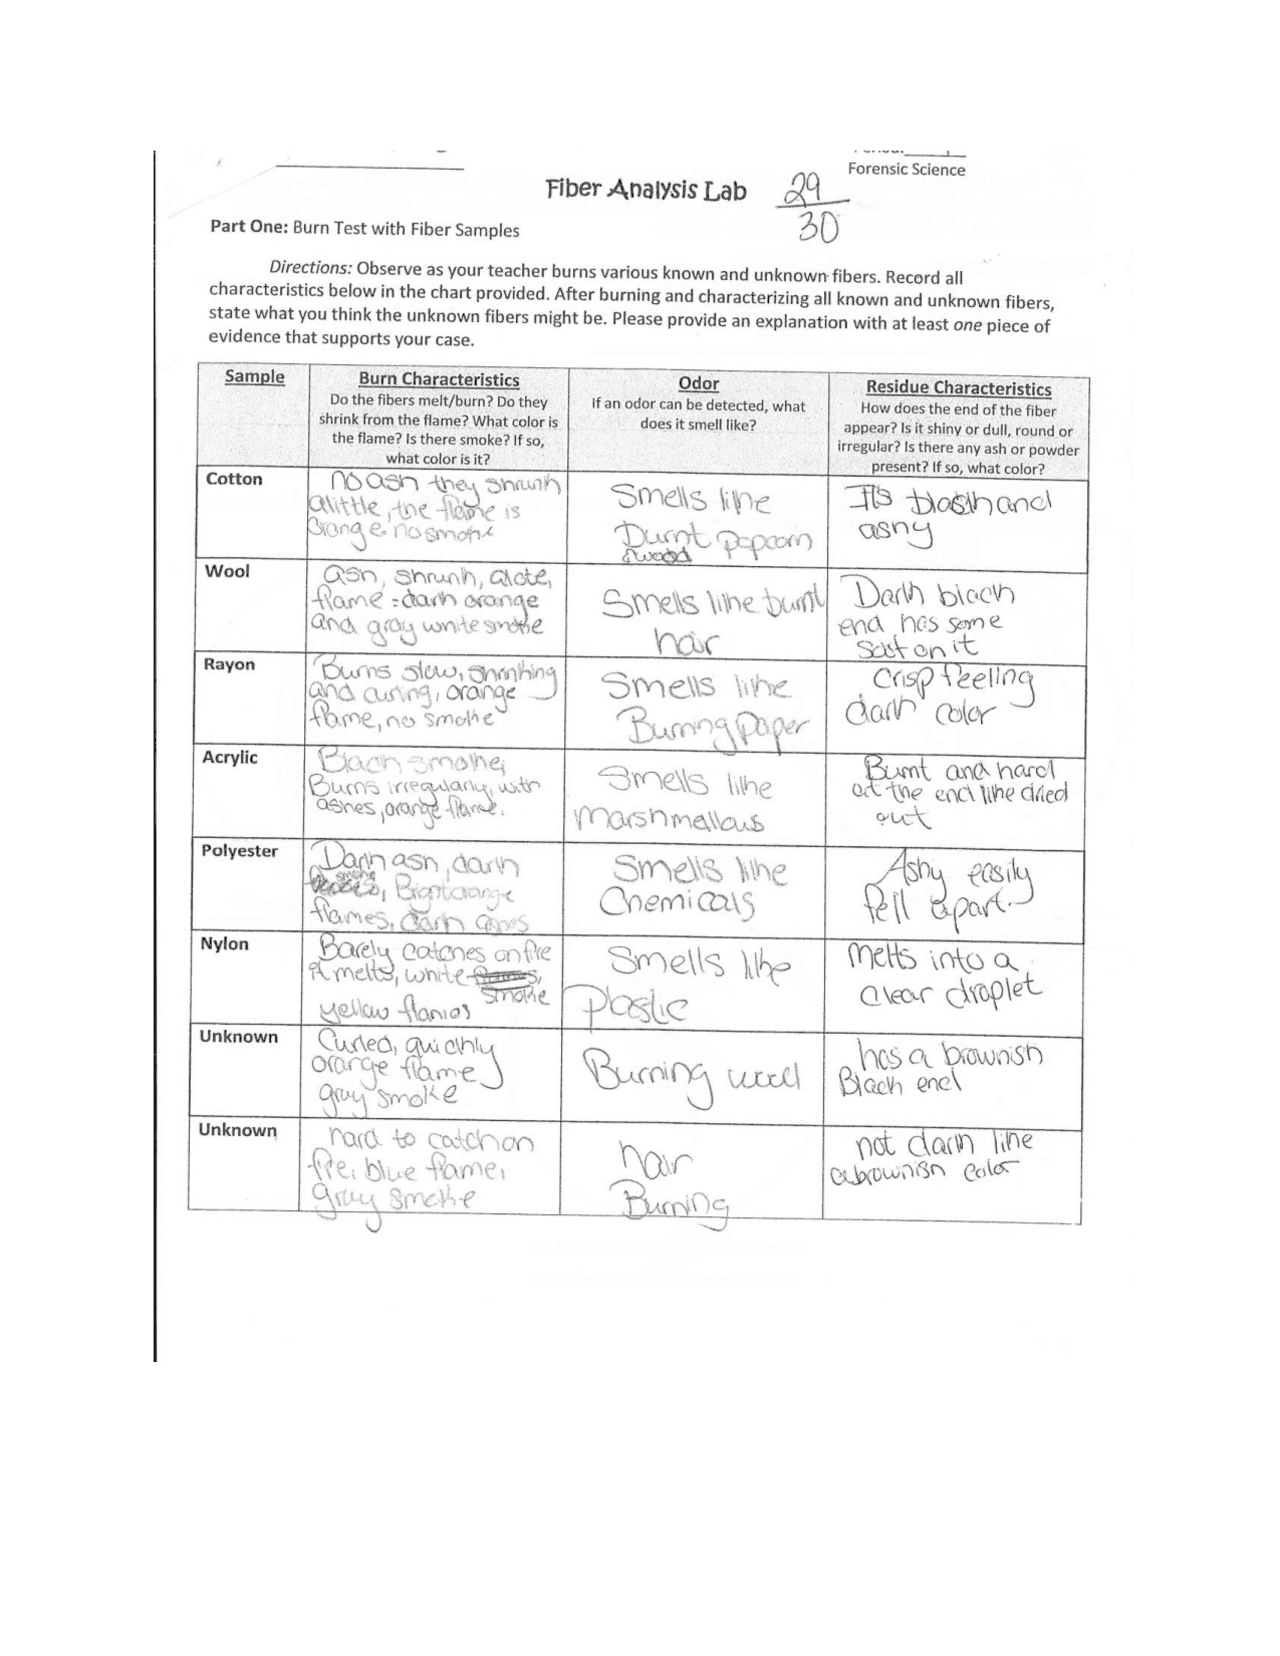 Forensic Science
Fiber Analysis Lab
29
30
Part One: Burn Test with Fiber Samples
Directions: Observe as your teacher burns various known and unknown fibers. Record all
characteristics below in the chart provided. After burning and characterizing all known and unknown fibers,
state what you think the unknown fibers might be. Please provide an explanation with at least one piece of
evidence that supports your case.
Sample
Burn Characteristics
Do the fibers melt/burn? Do they
shrink from the flame? What color is
the flame? Is there smoke? If so,
what color is it?
Odor
If an odor can be detected, what
does it smell like?
Residue Characteristics
How does the end of the fiber
appear? Is it shiny or dull, round or
irregular? Is there any ash or powder
present? If so, what color?
Cotton
no ash they shrunk
alittle, the flame is
orange. no smoke
Smells like
Burnt popcorn
& wood
It's black and
ashy
Wool
ash, shrunk, alote,
flame = dark orange
and gray white smoke
Smells like burnt
hair
Dark black
end has some
on it
Rayon
Burns slow, shrinking
and curing, orange
flame, no smoke
Smells like
Burning paper
Crisp feeling
dark color
Acrylic
Black smoke,
Burns irregularly, with
ashes, orange flame.
Smells like
marshmallows
Burnt and hard
at the end like dried
out
Polyester
Dark ash, dark
smoke
, Bright orange
flames, dark
Smells like
Chemicals
Ashy easily
fell apart.
Nylon
Barely catches on fire
it melts, white
smoke
yellow flames
Smells like
Plastic
melts into a
clear droplet
Unknown
Curled, quickly
orange flame
gray smoke
Burning wood
has a brownish
Black end
Unknown
hard to catch on
fire, blue flame,
gray smoke
hair
Burning
not dark like
a brownish color